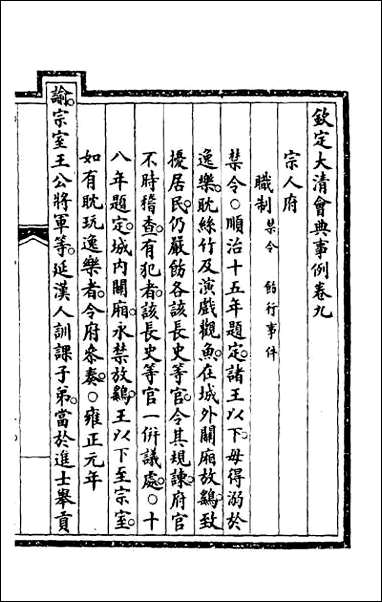 欽定大清會典事例卷九
宗人府
職制 禁令 飭行事件
禁令○順治十五年題定諸王以下毋得溺於
逸樂耽絲竹及演戲觀魚在城外關廂放鷂致
擾居民仍嚴飭各該長史等官令其規諫府官
不時稽查有犯者該長史等官一併議處○十
八年題定城內關廂永禁放鷂王以下至宗室
如有耽玩逸樂者令府叅奏○雍正元年
諭宗室王公將軍等延漢人訓課子弟當於進士舉貢